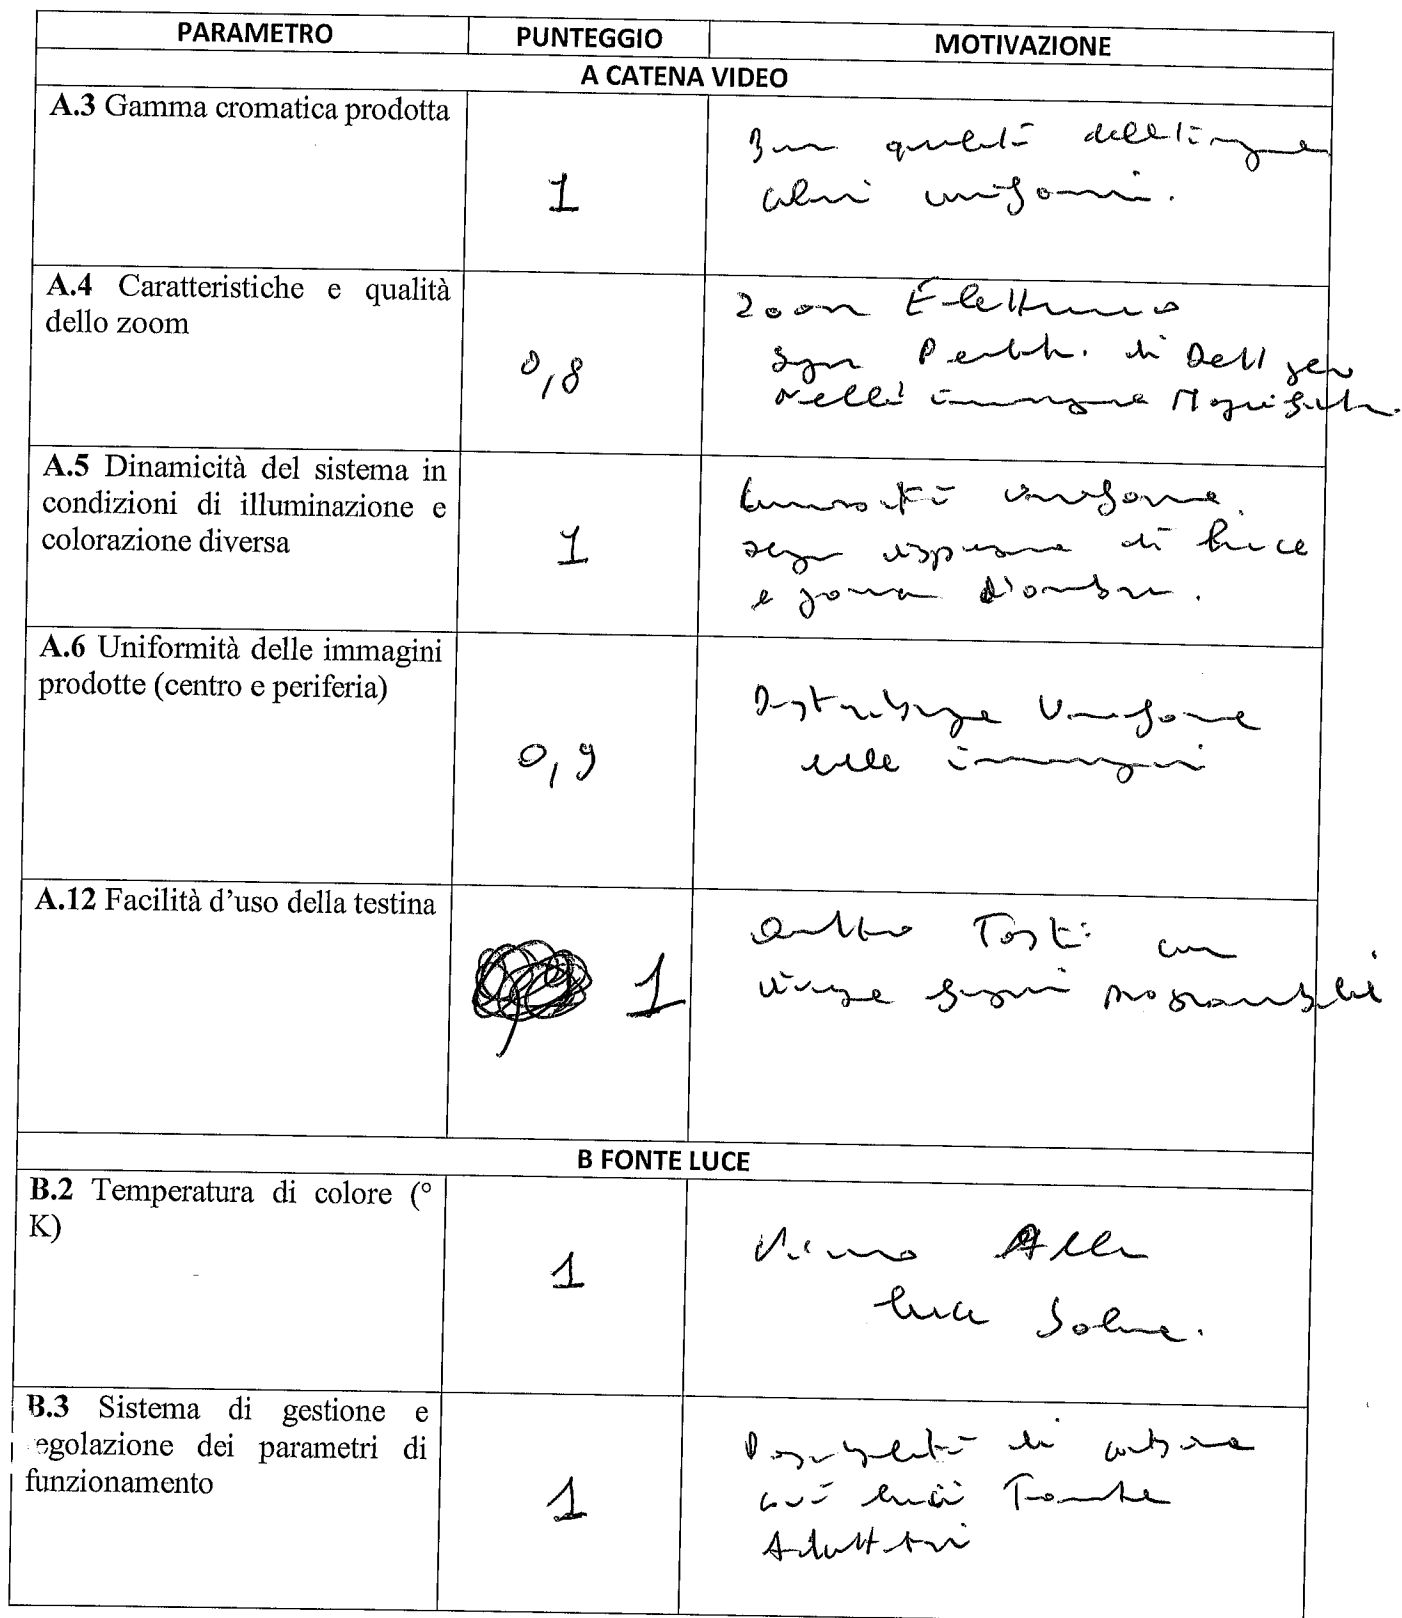 PARAMETRO PUNTEGGIO MOTIVAZIONE
A CATENA VIDEO
A.3 Gamma cromatica prodotta
1
qualità dell'immagine
colori uniformi.
A.4 Caratteristiche e qualità
dello zoom
0,8
zoom Elettronico
senza Perdita di Dettagli
nelle immagine Magnificata.
A.5 Dinamicità del sistema in
condizioni di illuminazione e
colorazione diversa
1
luminosità uniforme
senza dispersione di luce
e zona d'ombra.
A.6 Uniformità delle immagini
prodotte (centro e periferia)
0,9
Distribuzione Uniforme
nelle immagini
A.12 Facilità d'uso della testina
1
Quattro Tasti con
funzioni programmabili
B FONTE LUCE
B.2 Temperatura di colore (°
K)
1
Vicino Alla
luce Solare.
B.3 Sistema di gestione e
egolazione dei parametri di
funzionamento
1
Possibilità di
cavi luci Tramite
Adattatori